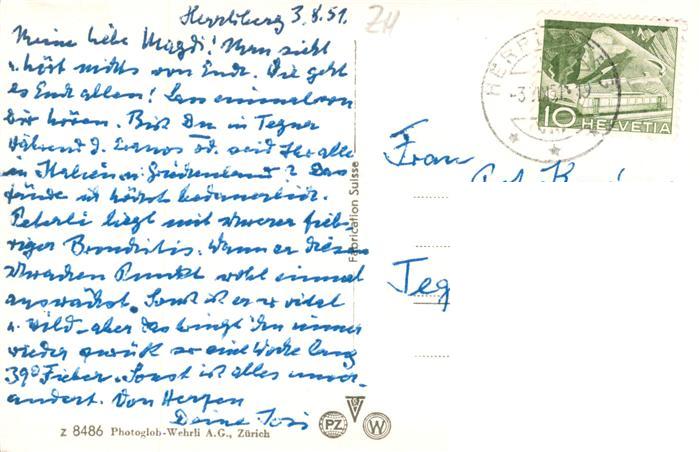 Herrliberg 3.8.51.
Meine liebe Magdi! Man sieht
u. hört nichts von Euch. Wie geht
es Euch allen? Lass einmal von
Dir hören. Bist Du in Tegna
während d. Eranos od. seid Ihr alle
in Italien u. Griechenland? Das
fände ich höchst bedauerlich.
Peterli liegt mit schwerer fieb-
riger Bronchitis. Wann er diesen
schwachen Punkt wohl einmal
auswächst. Sonst ist er so vital
u. wild - aber das bringt ihn immer
wieder zurück so eine Woche lang
39° Fieber. Sonst ist alles unver-
ändert. Von Herzen
Deine
ZH
HELVETIA
10
Frau
Teg
Fabrication Suisse
PZ
W
z 8486 Photoglob-Wehrli A.G., Zürich